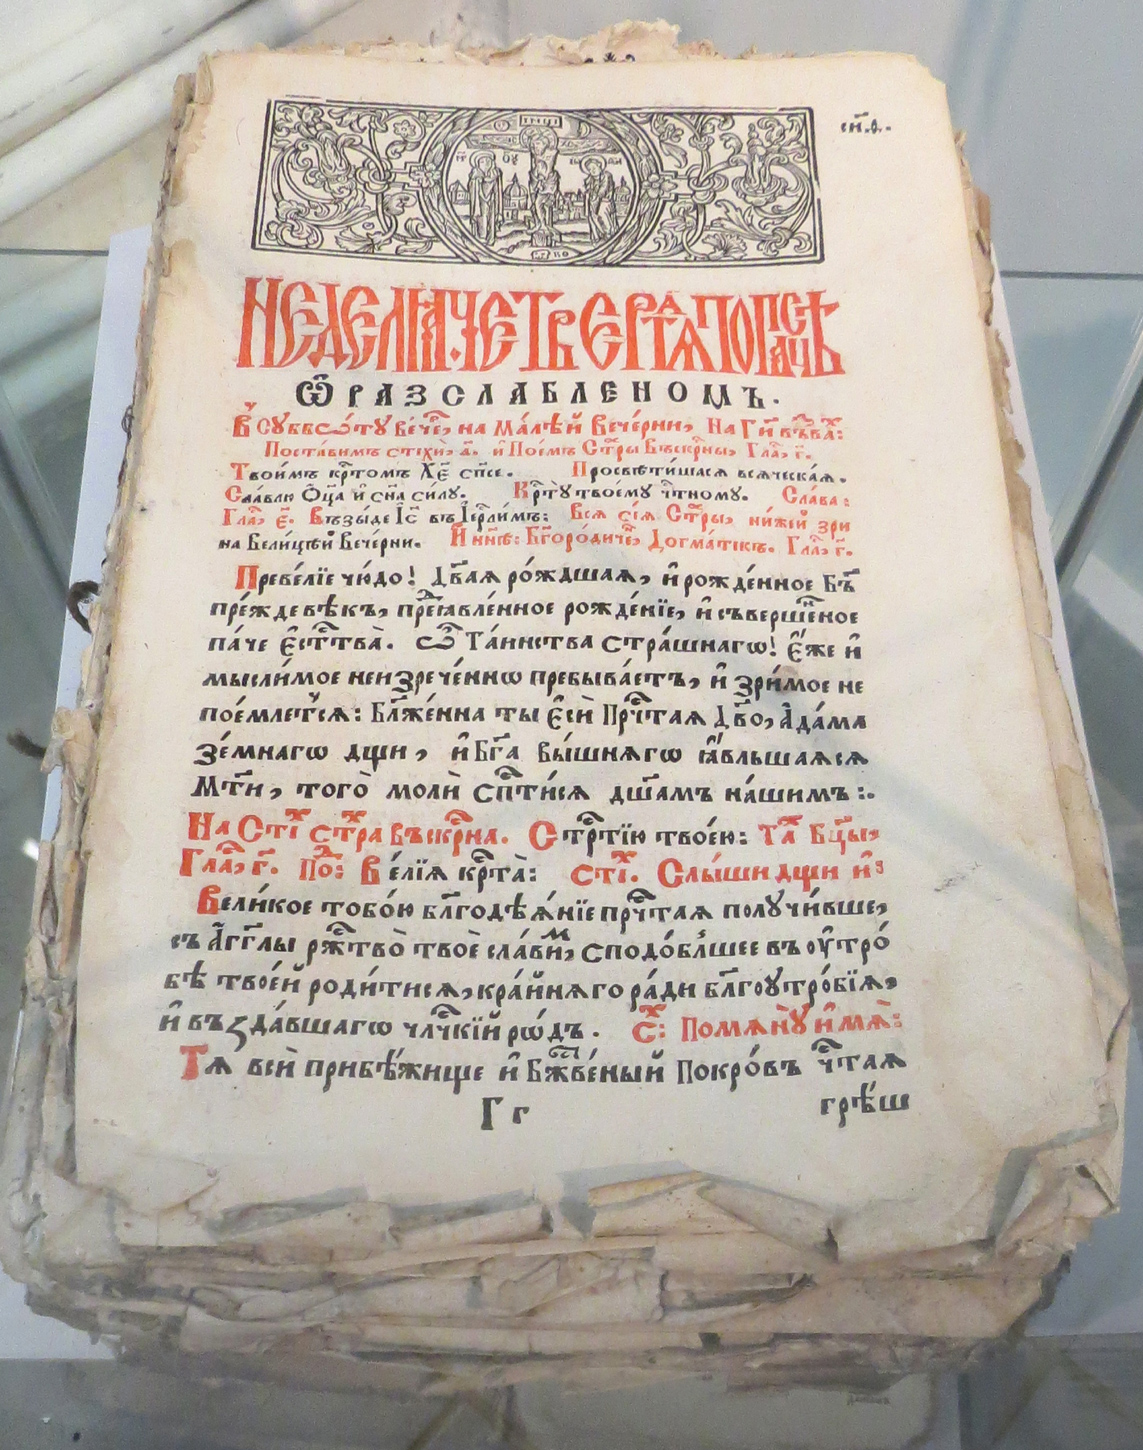 НЕДЕЛѦ ЧЕТВЕРТАѦ ПО ПАСЦѢ
Ѡ РАЗСЛАБЛЕНОМЪ.
В̾ Сꙋббѡ́тꙋ ве́че҃, на ма́лѣй Вече́рни, На Гд҇и възва̑:
Поста́вимъ стїхѝ, д҃. и҆ Пое́мъ Ст҇ры Въскр҇ны, Гла҇, г҃.
Твои́мъ кр҇томъ Хе҃ сп҃се. Просвѣти́шасѧ всѧ́ческаѧ.
Сла́влю Ѻ҆ц҃а и҆ сн҃а си́лꙋ. Кр҇тꙋ̀ твоемꙋ̀ чт҇номꙋ. Сла́ва:
Гла҇, є҃. Възы́де І҆с҃ въ І҆ерⷭ҇лимъ: Всѧ сїѧ̑ Ст҇ры, ни́жей зри
на Вели́цѣй Вече́рни. И҆ ны́нѣ: Бг҃оро́диче҇, Догма́тїкъ. Гла҇, г҃.
Преве́лїе чꙋ́до! Дв҃аѧ ро́ждшаѧ, и҆ рожде́нное Бг҃ъ
пре́жде вѣ́къ, пре҇авле́нное рожде́нїе, и҆ съверше́нное
па́че є҆ст҇тва̀. Ѽ Та́инства стра́шнагѡ! є҆́же и҆
мысли́мое неизрече́ннѡ пребыва́етъ, и҆ зри́мое не
пое́млетсѧ: Бл҃же́нна ты̀ є҆сѝ Пр҇чтаѧ Дв҃о, А҆да́ма
зе́мнагѡ дщи, и҆ Бг҃а вы́шнѧгѡ ꙗ҆́вльшаѧсѧ
Мт҃и, того̀ молѝ сп҇сти́сѧ дш҃а́мъ на́шимъ:.
На Ст҇і ст҇ра въскр҇на. Ст҇р҇тїю твое́ю: Та̑ Бц҃ы,
Гла҇, г҃. По: Ве́лїѧ кр҇та̀: стї҇. Слы́ши дщи и҆:
Вели́кое тобо́ю бл҃годѣѧ́нїе пр҇чтаѧ полꙋчи́вше,
съ а҆́гг҃лы рж҇тво̀ твоѐ сла́вим, сподо́бльшее въ оу҆тро́
бѣ твое́й роди́тисѧ, кра́йнѧго ра́ди бл҃гоꙋтро́бїѧ,
и҆ въздáвшаго чл҃чкїй рѡ́дъ. Ст҇: Помѧнꙋ̀ и҆мѧ̀:
Тѧ всѝ прибѣ́жище и҆ Бж҇ве́ный Покро́въ чт҇аѧ
Г г грѣ́ш